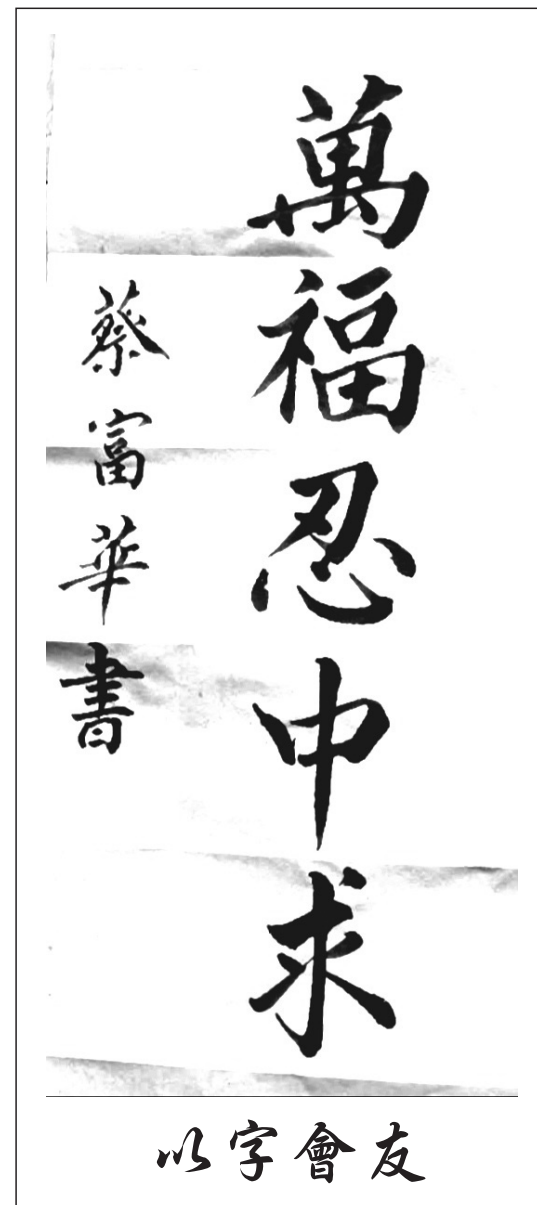 萬福忍中求
蔡富華書
以字會友